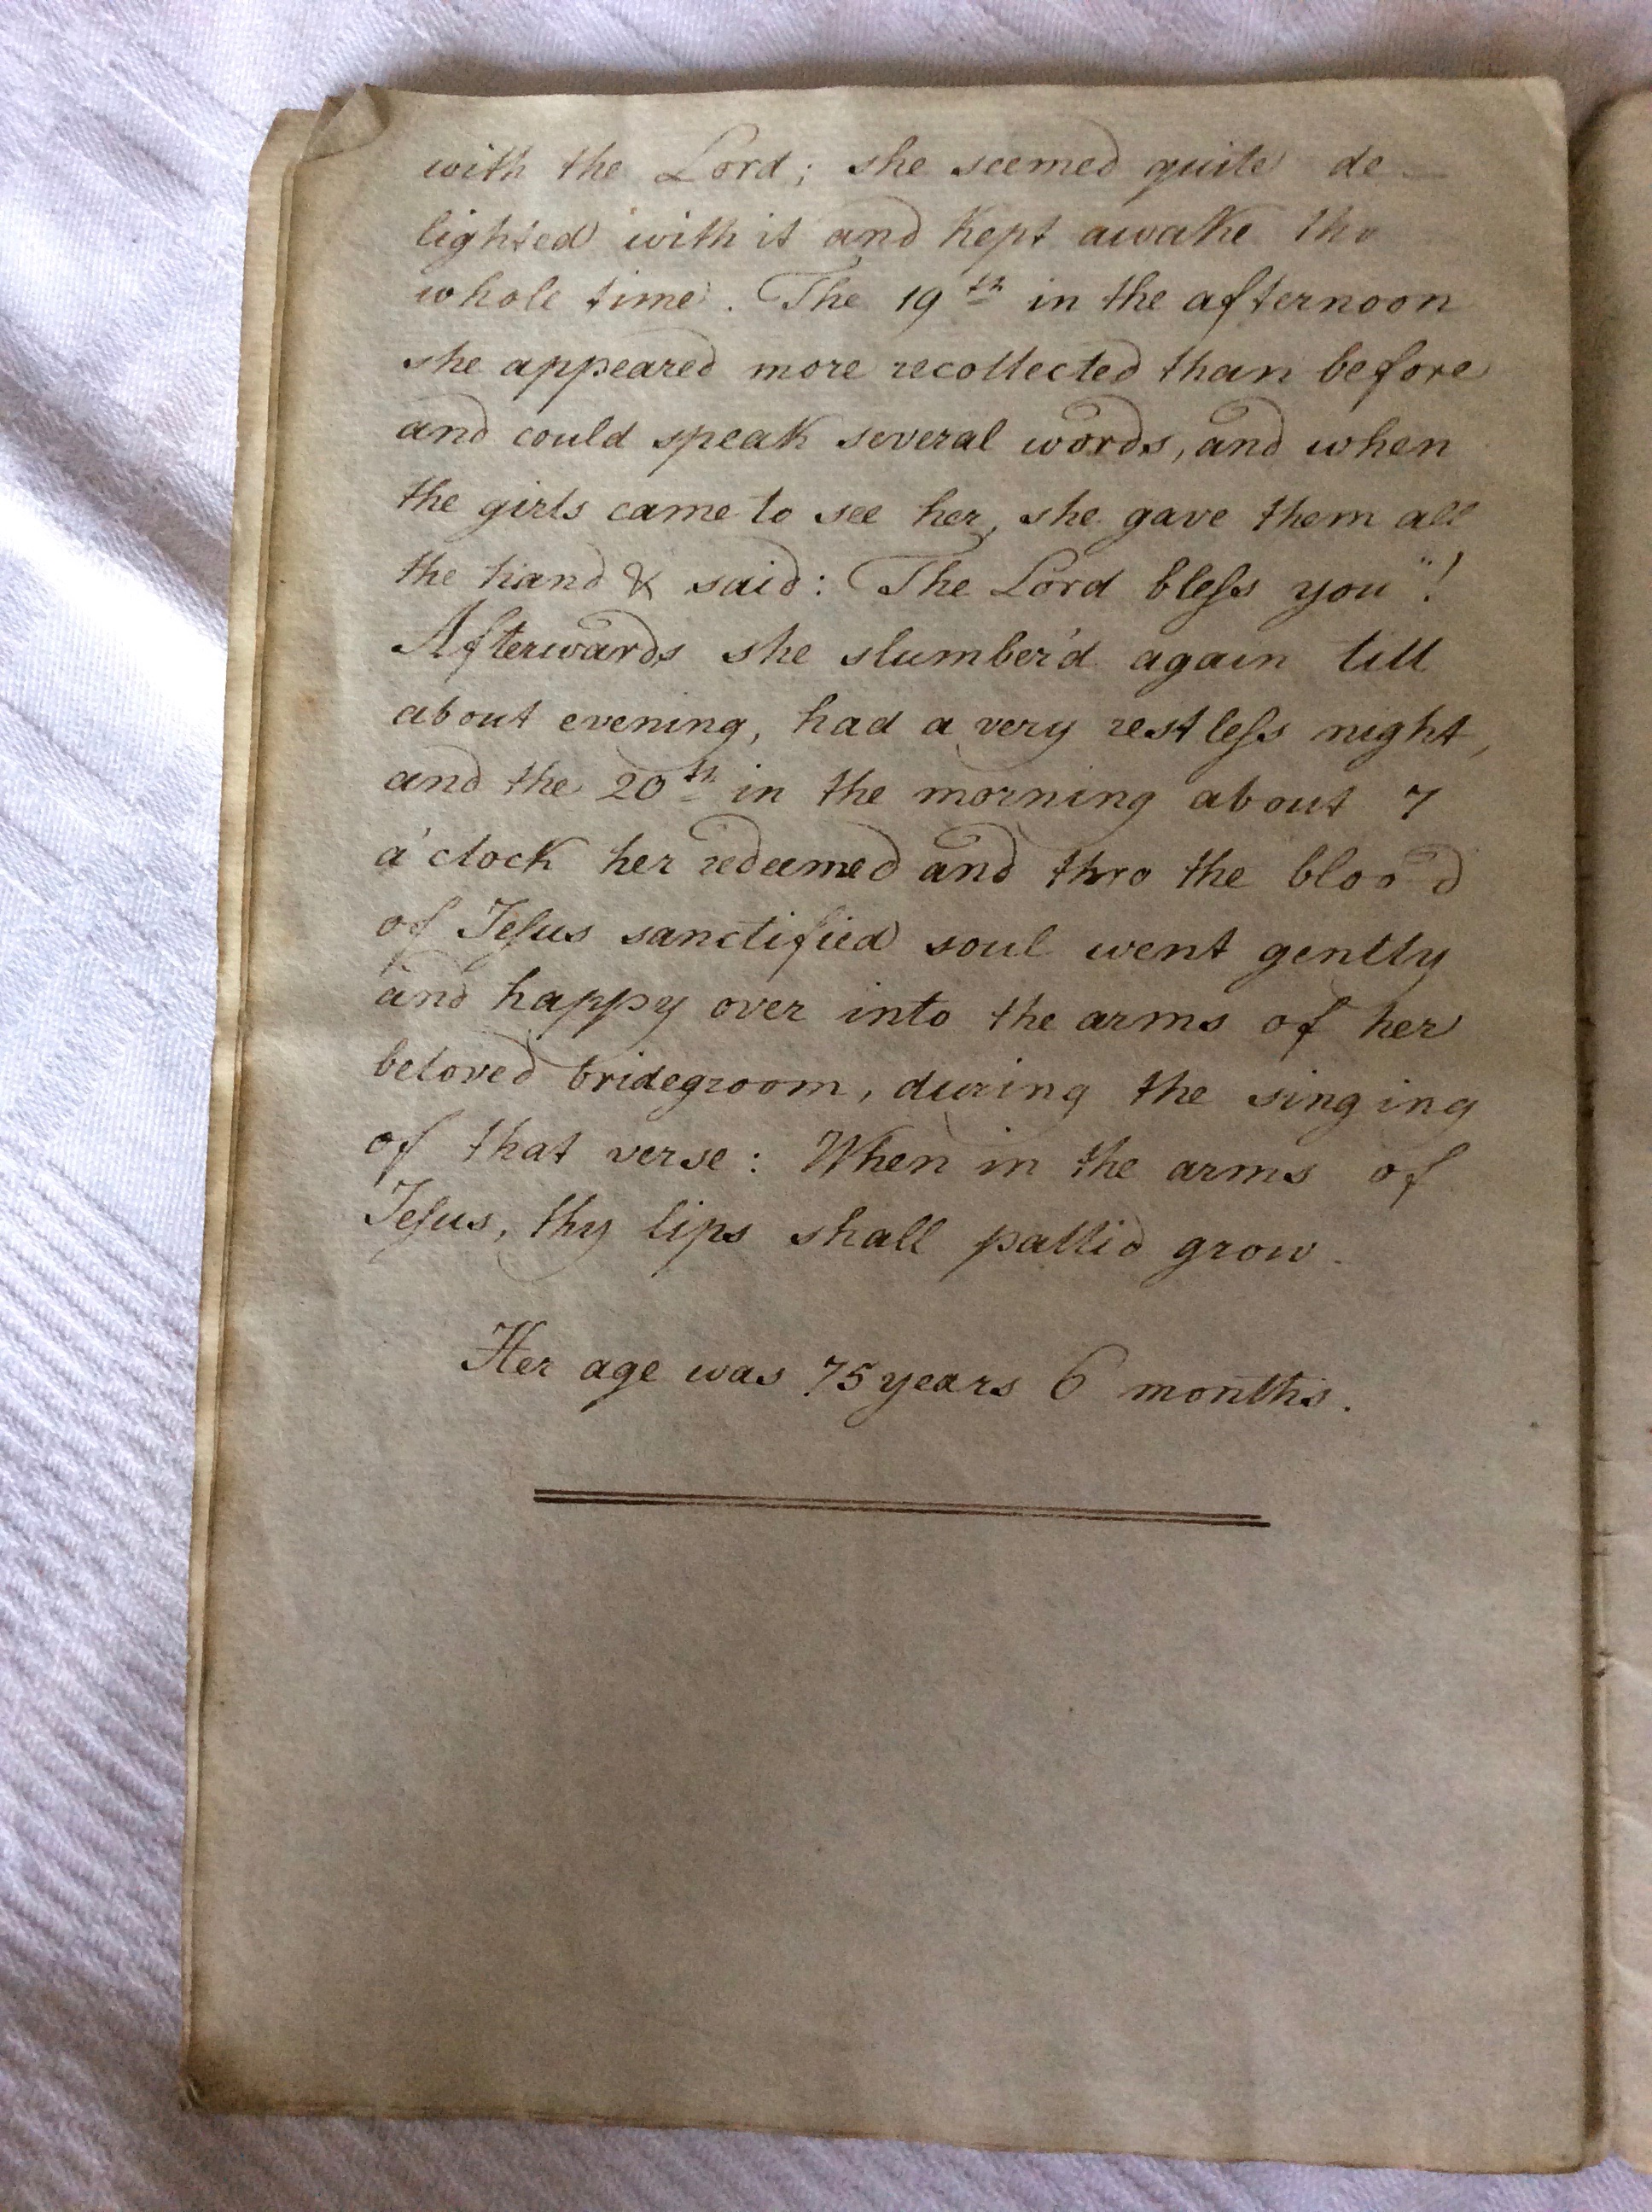 with the Lord; she seemed quite de-
lighted with it and kept awake the
whole time. The 19th in the afternoon
she appeared more recollected than before
and could speak several words, and when
the girls came to see her, she gave them all
the hand & said: The Lord bleſs you"!
Afterwards she slumber'd again till
about evening, had a very restleſs night,
and the 20th in the morning about 7
a'clock her redeemed and thro the blood
of Jeſus sanctified soul went gently
and happy over into the arms of her
beloved bridegroom, during the singing
of that verse: When in the arms of
Jeſus, thy lips shall pallid grow.
Her age was 75 years 6 months.